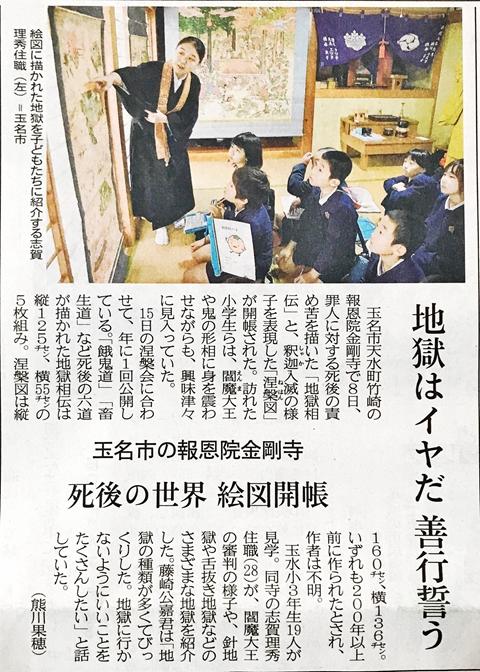 地獄はイヤだ 善行誓う
玉名市の報恩院金剛寺
死後の世界 絵図開帳
絵図に描かれた地獄を子どもたちに紹介する志賀
理秀住職(左)=玉名市
玉名市天水町竹崎の
報恩院金剛寺で8日、
罪人に対する死後の責
め苦を描いた「地獄相
伝」と、釈迦入滅の様
子を表現した「涅槃図」
が開帳された。訪れた
小学生らは、閻魔大王
や鬼の形相に身を震わ
せながらも、興味津々
に見入っていた。
15日の涅槃会に合わ
せて、年に1回公開し
ている。「餓鬼道」「畜
生道」など死後の六道
が描かれた地獄相伝は
縦125㌢、横55㌢の
5枚組み。涅槃図は縦
160㌢、横136㌢。
いずれも200年以上
前に作られたとされ、
作者は不明。
玉水小3年生19人が
見学。同寺の志賀理秀
住職(28)が、閻魔大王
の審判の様子や、針地
獄や舌抜き地獄などの
さまざまな地獄を紹介
した。藤崎公嘉君は「地
獄の種類が多くてびっ
くりした。地獄に行か
ないようにいいことを
たくさんしたい」と話
していた。
(熊川果穂)